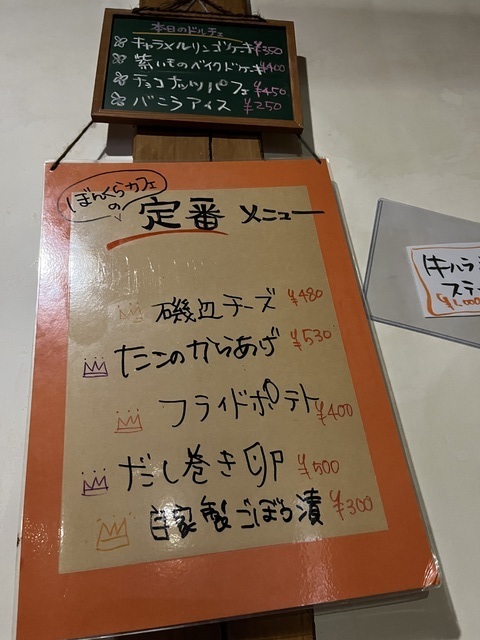 本日のドルチェ
キャラメルリンゴケーキ ¥350
紫いものベイクドケーキ ¥400
チョコナッツパフェ ¥450
バニラアイス ¥250
ぼんくらカフェ
の
定番メニュー
磯辺チーズ ¥480
たこのからあげ ¥530
フライドポテト ¥400
だし巻き卵 ¥500
自家製ごぼう漬 ¥300
牛ハラ
ステ
¥1,000